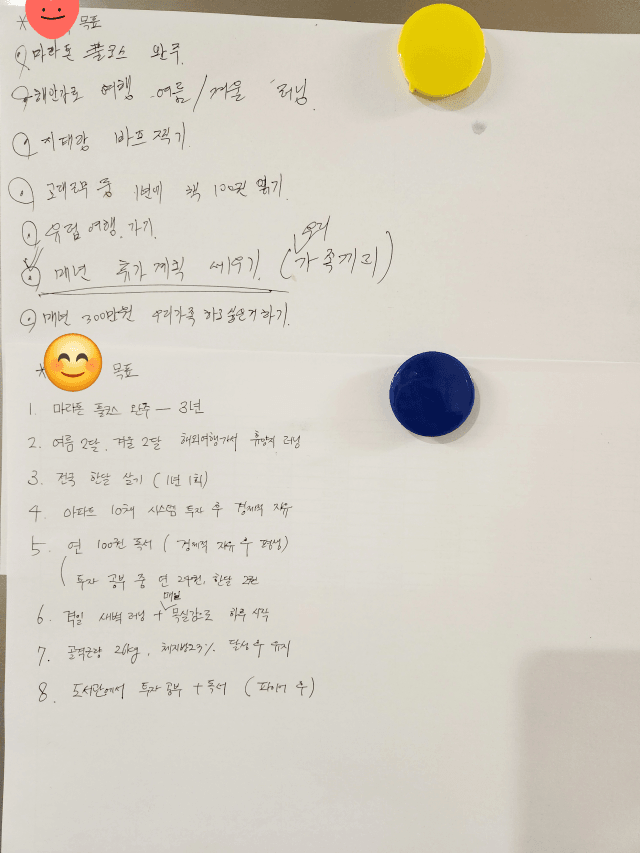 * 목표
마라톤 풀코스 완주.
여행 여름/겨울 러닝.
바프 찍기
1년에 책 100권 읽기.
유럽 여행. 가기.
매년 휴가 계획 세우기. (우리 가족끼리)
매년 300만원 우리가족 하고싶은거 하기.
* 목표
1. 마라톤 풀코스 완주 — 3년
2. 여름 2달, 겨울 2달 해외여행가서 휴양지 러닝
3. 전국 한달 살기 (1년 1회)
4. 아파트 10채 시스템 투자 후 경제적 자유
5. 연 100권 독서 (경제적 자유 후 평생)
( 투자 공부 중 연 24권, 한달 2권
매일
6. 격일 새벽 러닝 + 목실감으로 하루 시작
7. 골격근량 26kg, 체지방 23% 달성 후 유지
8. 도서관에서 투자 공부 + 독서 (파이어 후)